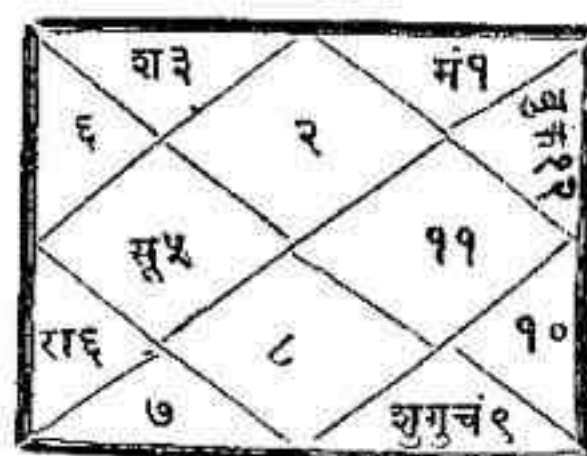 श३
मं१
६
२
सू५
११
रा६
८
१०
७
शुगुचं९